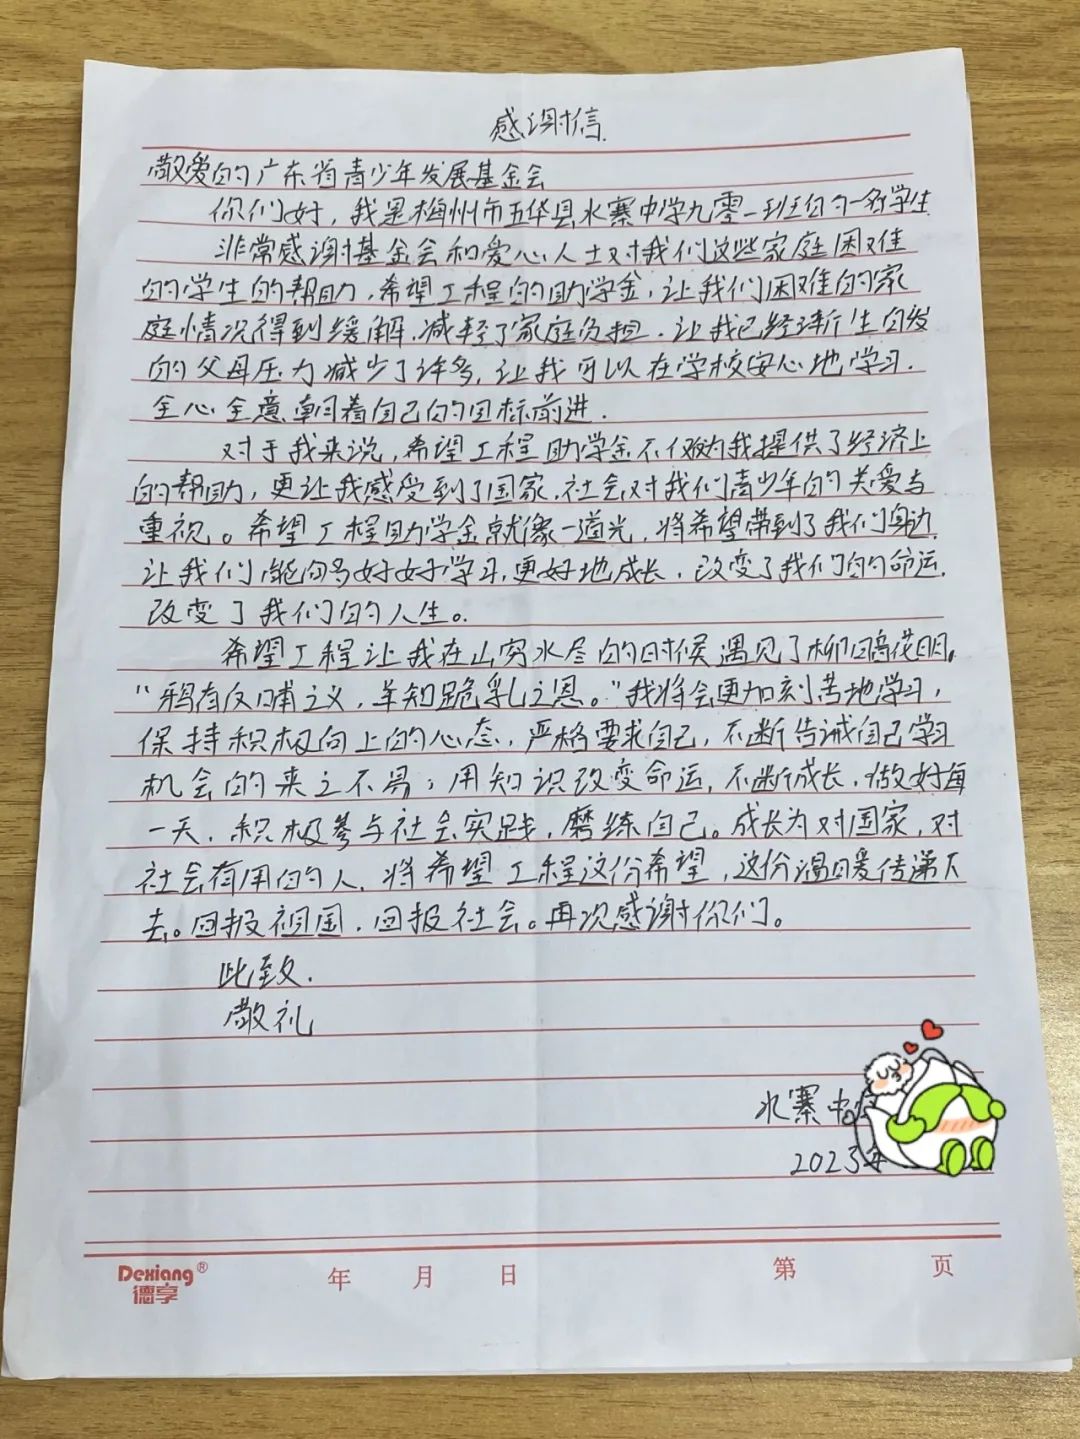 感谢信.
敬爱的广东省青少年发展基金会
你们好，我是梅州市五华县水寨中学九零一班的一名学生
非常感谢基金会和爱心人士对我们这些家庭困难
的学生的帮助，希望工程的助学金，让我们困难的家
庭情况得到缓解.减轻了家庭负担.让我已经渐生白发
的父母压力减少了许多，让我可以在学校安心地学习.
全心全意朝着自己的目标前进.
对于我来说，希望工程助学金不仅为我提供了经济上
的帮助，更让我感受到了国家.社会对我们青少年的关爱与
重视。希望工程助学金就像一道光，将希望带到了我们身边.
让我们能够好好学习.更好地成长.改变了我们的命运.
改变了我们的人生。
希望工程让我在山穷水尽的时候遇见了柳暗花明。
“鸦有反哺之义，羊知跪乳之恩。”我将会更加刻苦地学习，
保持积极向上的心态，严格要求自己，不断告诫自己学习
机会的来之不易；用知识改变命运，不断成长，做好每
一天.积极参与社会实践，磨练自己。成长为对国家，对
社会有用的人.将希望工程这份希望，这份温暖传递下
去。回报祖国.回报社会。再次感谢你们。
此致.
敬礼
水寨中
2023年
Dexiang®
德享
年 月 日 第 页